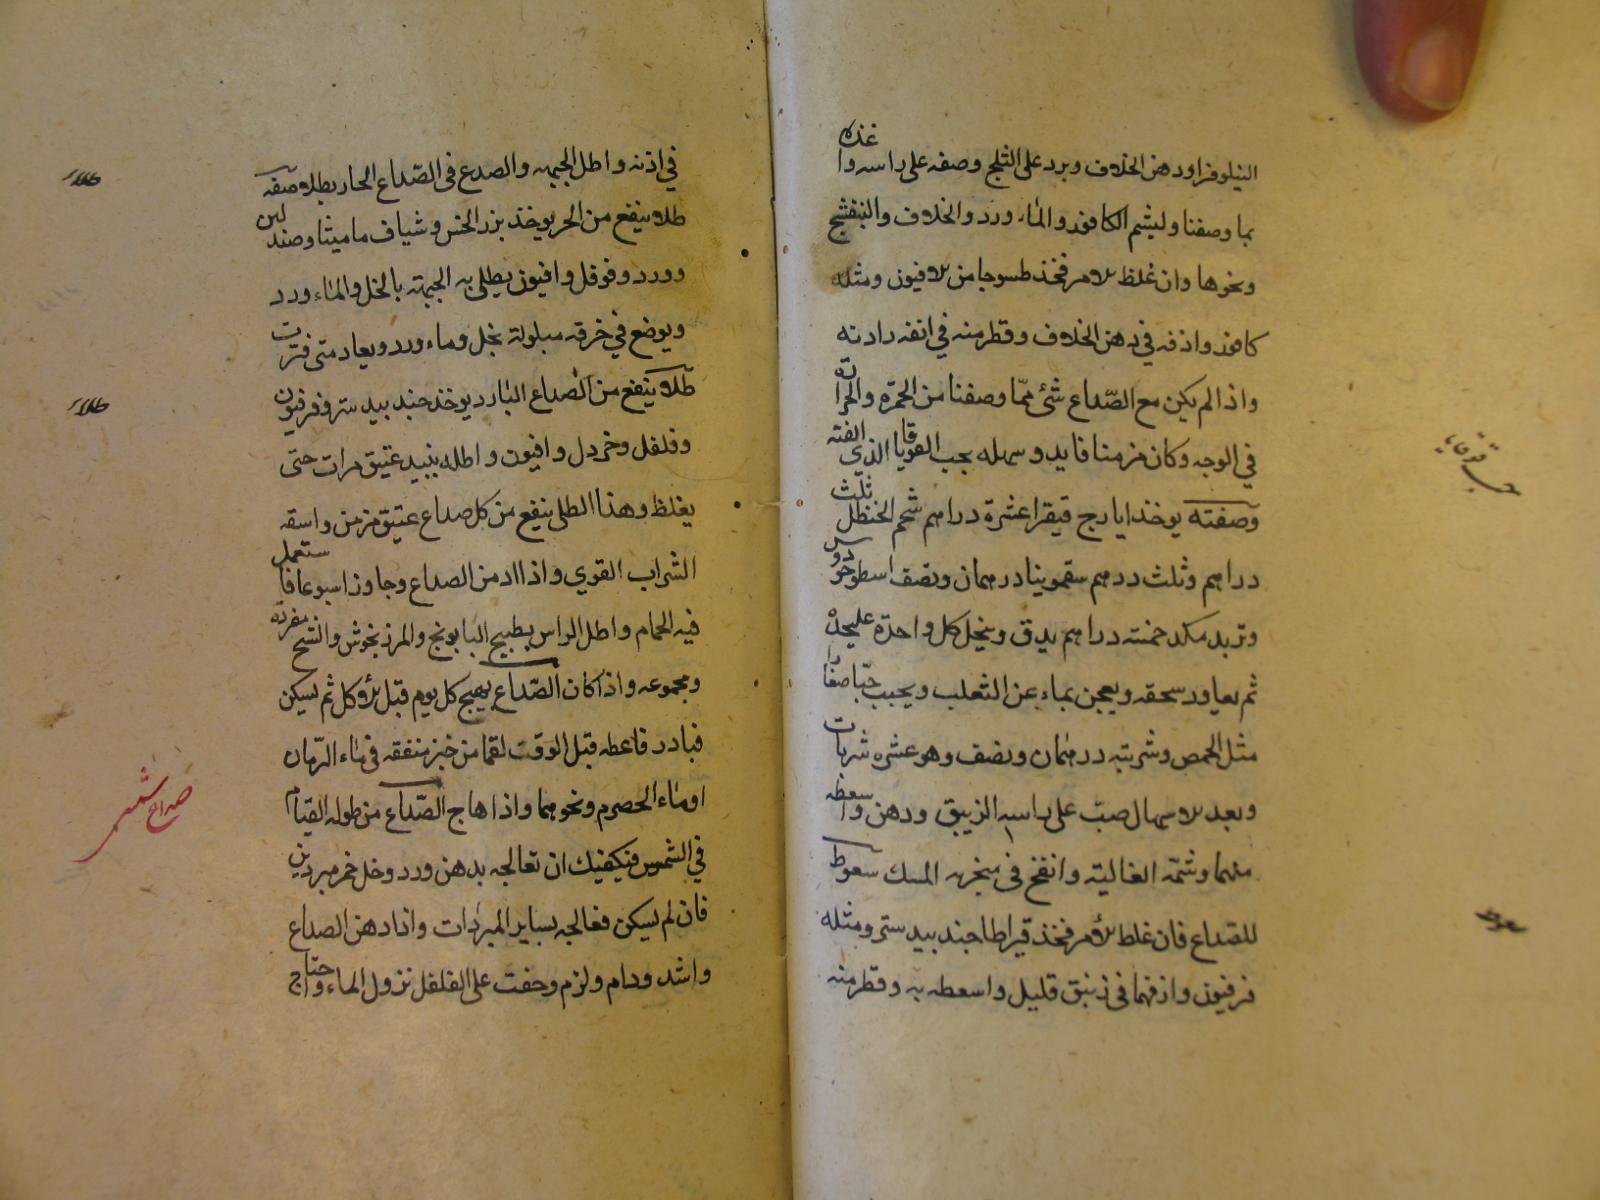 النيلوفر او دهن الخلاف وبرد على الثلج وصفه على راسه واغذه
بما وصفنا وليشم الكافور والماء ورد والخلاف والبنفشج
ونحوها وان غلظ الامر فخذ طسوجا من الافيون ومثله
كافور واذفه في دهن الخلاف وقطر منه في انفه واذنه
واذا لم يكن مع الصّداع شئ ممّا وصفنا من الحمرة والحرارة
في الوجه وكان مزمنا فابد وسهله بحب القوقايا الذي الفته
وصفته يوخذ ايارج فيقرا عشرة دراهم شحم الحنظل ثلث
دراهم وثلث درهم سقمونيا درهمان ونصف اسطوخودوس
وتربد مكد خمسة دراهم يدق وينخل كل واحدة عليحدة
ثم يعاود سحقه ويعجن بماء عنب الثعلب ويحبب حبّا صغارا
مثل الحمص وشربته درهمان ونصف وهو عشره شربات
وبعد الاسهال صبّ على راسه الزيبق ودهن واسعطه
منهما وشمّه الغالية وانفخ في منخريه المسك سعوط
للصداع فان غلط الأمر فخذ قيراطا جندبيدستر ومثله
فرفيون واذفهما في زنبق قليل واسعطه به وقطر منه
حب قوقايا
سعوط
في اذنه واطل الجبهه والصدغ في الصّداع الحار بطلا صفه
طلا ينفع من الحر يوخذ بزر الخس وشياف ماميثا وصندلين
وورد وفوفل وافيون يطلى به الجبهة بالخل والماء ورد
ويوضع في خرقه مبلولة بخل وماء ورد ويعاد متى فترت
طلا ينفع من الصداع البارد يوخذ جندبيدستر وفرفيون
وفلفل وخردل وافيون واطله بنبيد عتيق مرات حتى
يغلظ وهذا الطلى ينفع من كل صداع عتيق مزمن واسقه
الشراب القوي واذا ادمن الصداع وجاوز اسبوعا فاستعمل
فيه الحمام واطل الراس بطبيخ البابونج والمرزنجوش والشيح مفردة
ومجموعه واذا كان الصّداع يهيج كل يوم قبل الأوكل ثم يسكن
فبادر فاعطه قبل الوقت لقما من خبز منفقه في ماء الرّمان
او ماء الحصرم ونحوهما واذا هاج الصّداع من طوله القيام
في الشمس فيكفيك ان تعالجه بدهن ورد وخل خمر مبردين
فان لم يسكن فعالجه بساير المبرّدات واذا دهن الصداع
واشد ودام ولزم وخفت على الفلفل نزول الماء واحتاج
طلا
طلا
صداع شمس